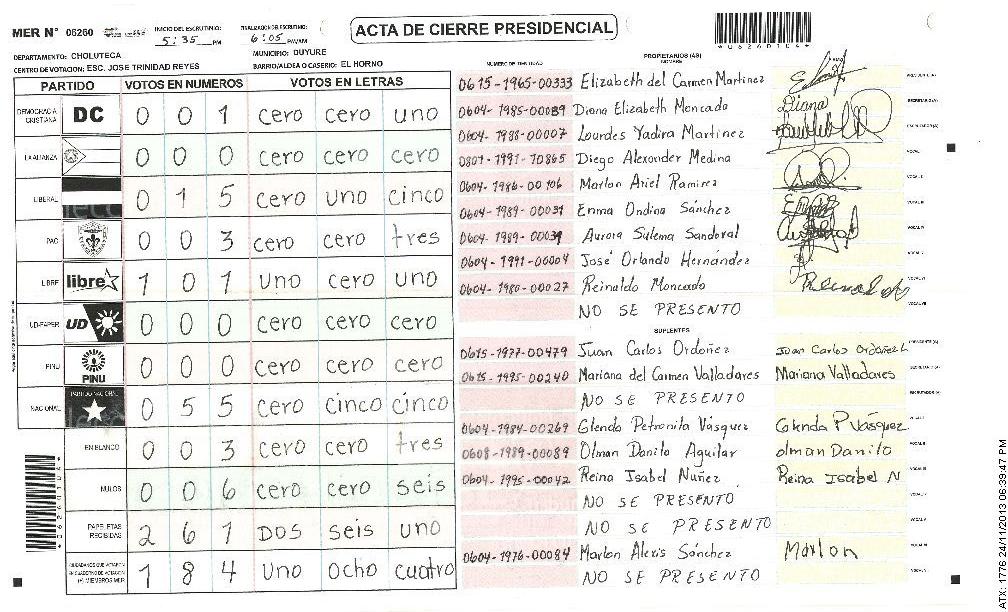 MER N° 06260
INICIO DEL ESCRUTINIO: 5:35 PM
FINALIZACION DEL ESCRUTINIO: 6:05 PM/AM
ACTA DE CIERRE PRESIDENCIAL
*06260104*
DEPARTAMENTO: CHOLUTECA
MUNICIPIO: DUYURE
CENTRO DE VOTACION: ESC. JOSE TRINIDAD REYES
BARRIO/ALDEA O CASERIO: EL HORNO
PARTIDO VOTOS EN NUMEROS VOTOS EN LETRAS
DEMOCRACIA CRISTIANA DC 0 0 1 cero cero uno
LA ALIANZA 0 0 0 cero cero cero
LIBERAL 0 1 5 cero uno cinco
PAC 0 0 3 cero cero tres
LIBRE libre 1 0 1 uno cero uno
UD-FAPER UD 0 0 0 cero cero cero
PINU PINU 0 0 0 cero cero cero
NACIONAL PARTIDO NACIONAL 0 5 5 cero cinco cinco
EN BLANCO 0 0 3 cero cero tres
NULOS 0 0 6 cero cero seis
PAPELETAS RECIBIDAS 2 6 1 Dos seis uno
CIUDADANOS QUE VOTARON EN CUADERNO DE VOTACION (+) MIEMBROS MER 1 8 4 uno ocho cuatro
NUMERO DE IDENTIDAD
PROPIETARIOS (AS)
NOMBRE
FIRMA
0615-1965-00333 Elizabeth del Carmen Martinez PRESIDENTE (A)
0604-1985-00039 Diana Elizabeth Moncado Diana SECRETARIO(A)
0604-1988-00007 Lourdes Yadira Martinez ESCRUTADOR (A)
0801-1991-10865 Diego Alexander Medina VOCAL I
0604-1986-00106 Marlon Ariel Ramirez VOCAL II
0604-1989-00031 Enma Ondina Sánchez VOCAL III
0604-1989-00034 Aurora Sulema Sandoval VOCAL IV
0604-1991-00004 José Orlando Hernández VOCAL V
0604-1980-00027 Reinaldo Moncado VOCAL VI
NO SE PRESENTO VOCAL VII
SUPLENTES
0615-1977-00479 Juan Carlos Ordoñez Juan Carlos Ordoñez L PRESIDENTE (A)
0615-1995-00240 Mariana del Carmen Valladares Mariana Valladares SECRETARIO (A)
NO SE PRESENTO ESCRUTADOR (A)
0604-1984-00269 Glenda Petronila Vásquez Glenda P Vásquez VOCAL I
0608-1989-00089 Olman Danilo Aguilar olman Danilo VOCAL II
0604-1995-00042 Reina Isabel Nuñez Reina Isabel N VOCAL III
NO SE PRESENTO VOCAL IV
NO SE PRESENTO VOCAL V
0604-1976-00084 Marlon Alexis Sánchez Marlon VOCAL VI
NO SE PRESENTO VOCAL VII
ATX: 1776 24/11/2013 06:39:47 PM